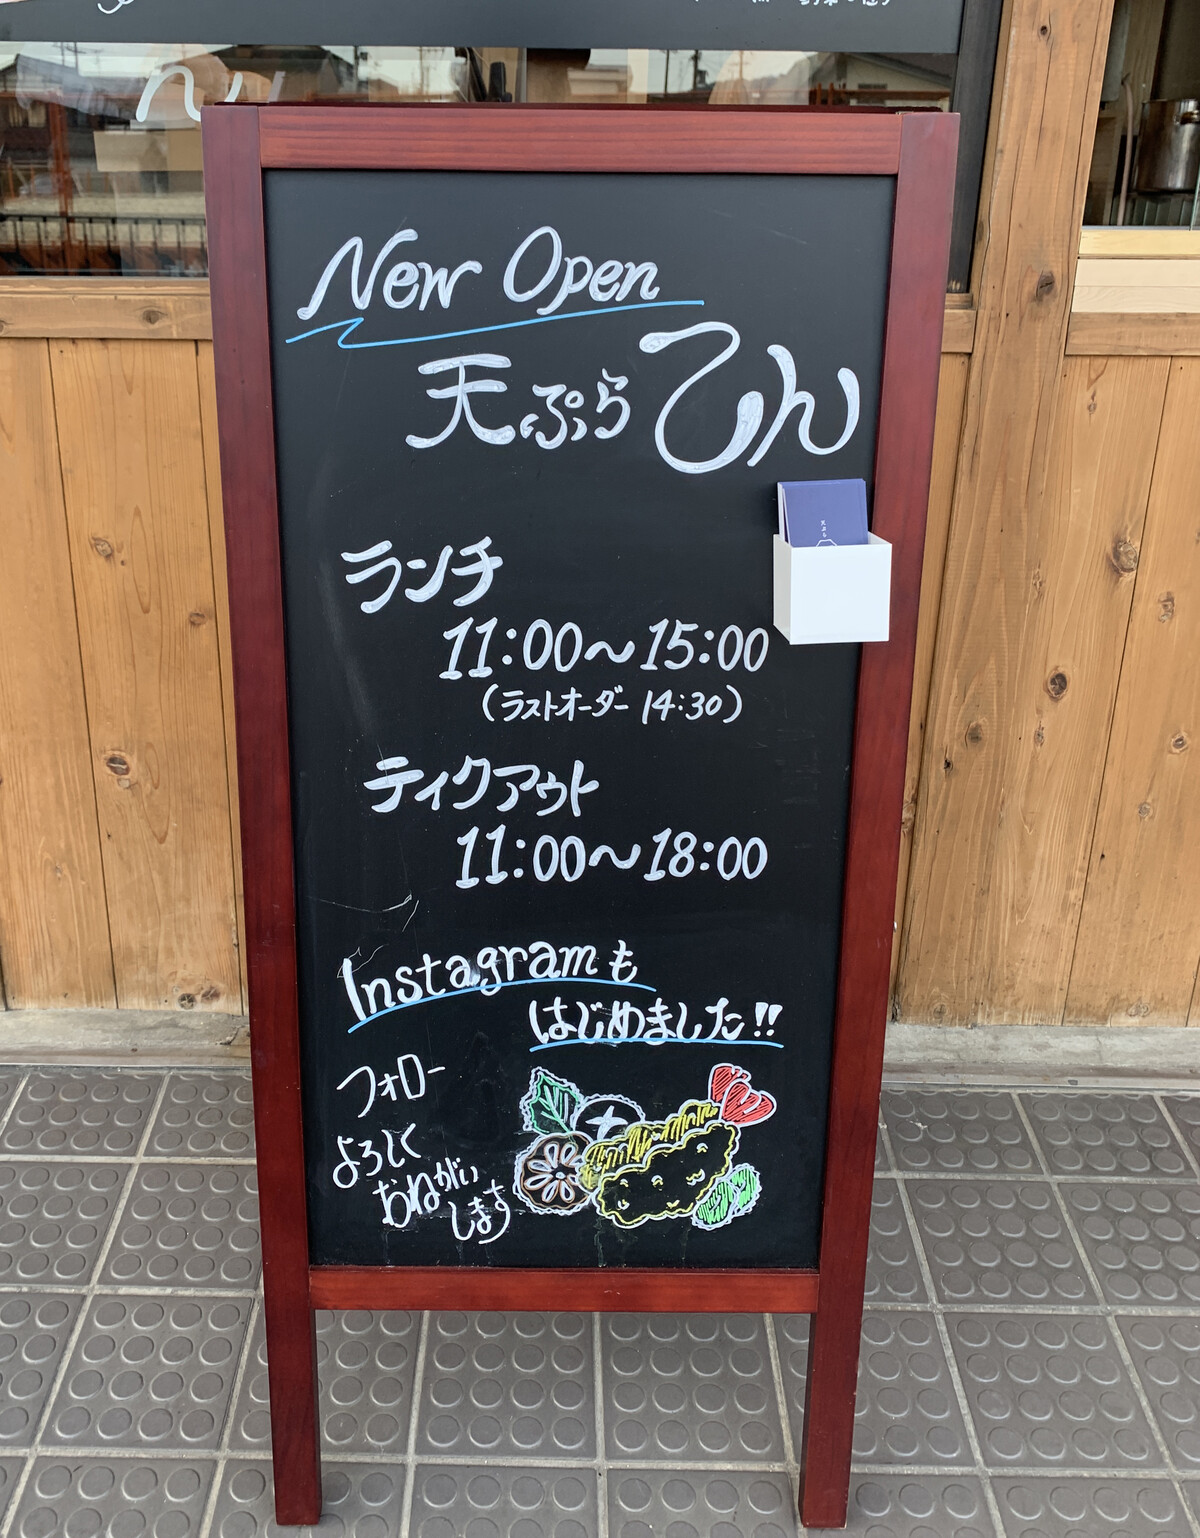 New Open
天ぷら てん
天ぷら
ランチ
11:00～15:00
(ラストオーダー 14:30)
テイクアウト
11:00～18:00
Instagramも
はじめました!!
フォロー
よろしく
おねがい
します